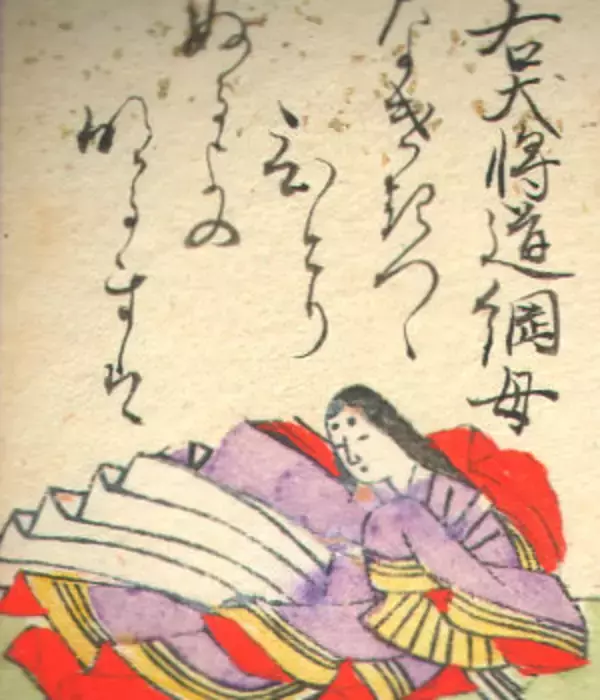 右大将道綱母
なけきつゝ
ひとり
ぬるよの
明るまは